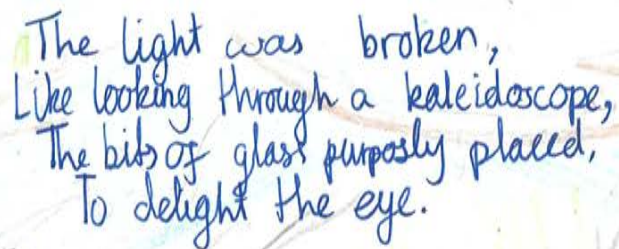 The light was broken,
Like looking through a kaleidoscope,
The bits of glass purposly placed,
To delight the eye.